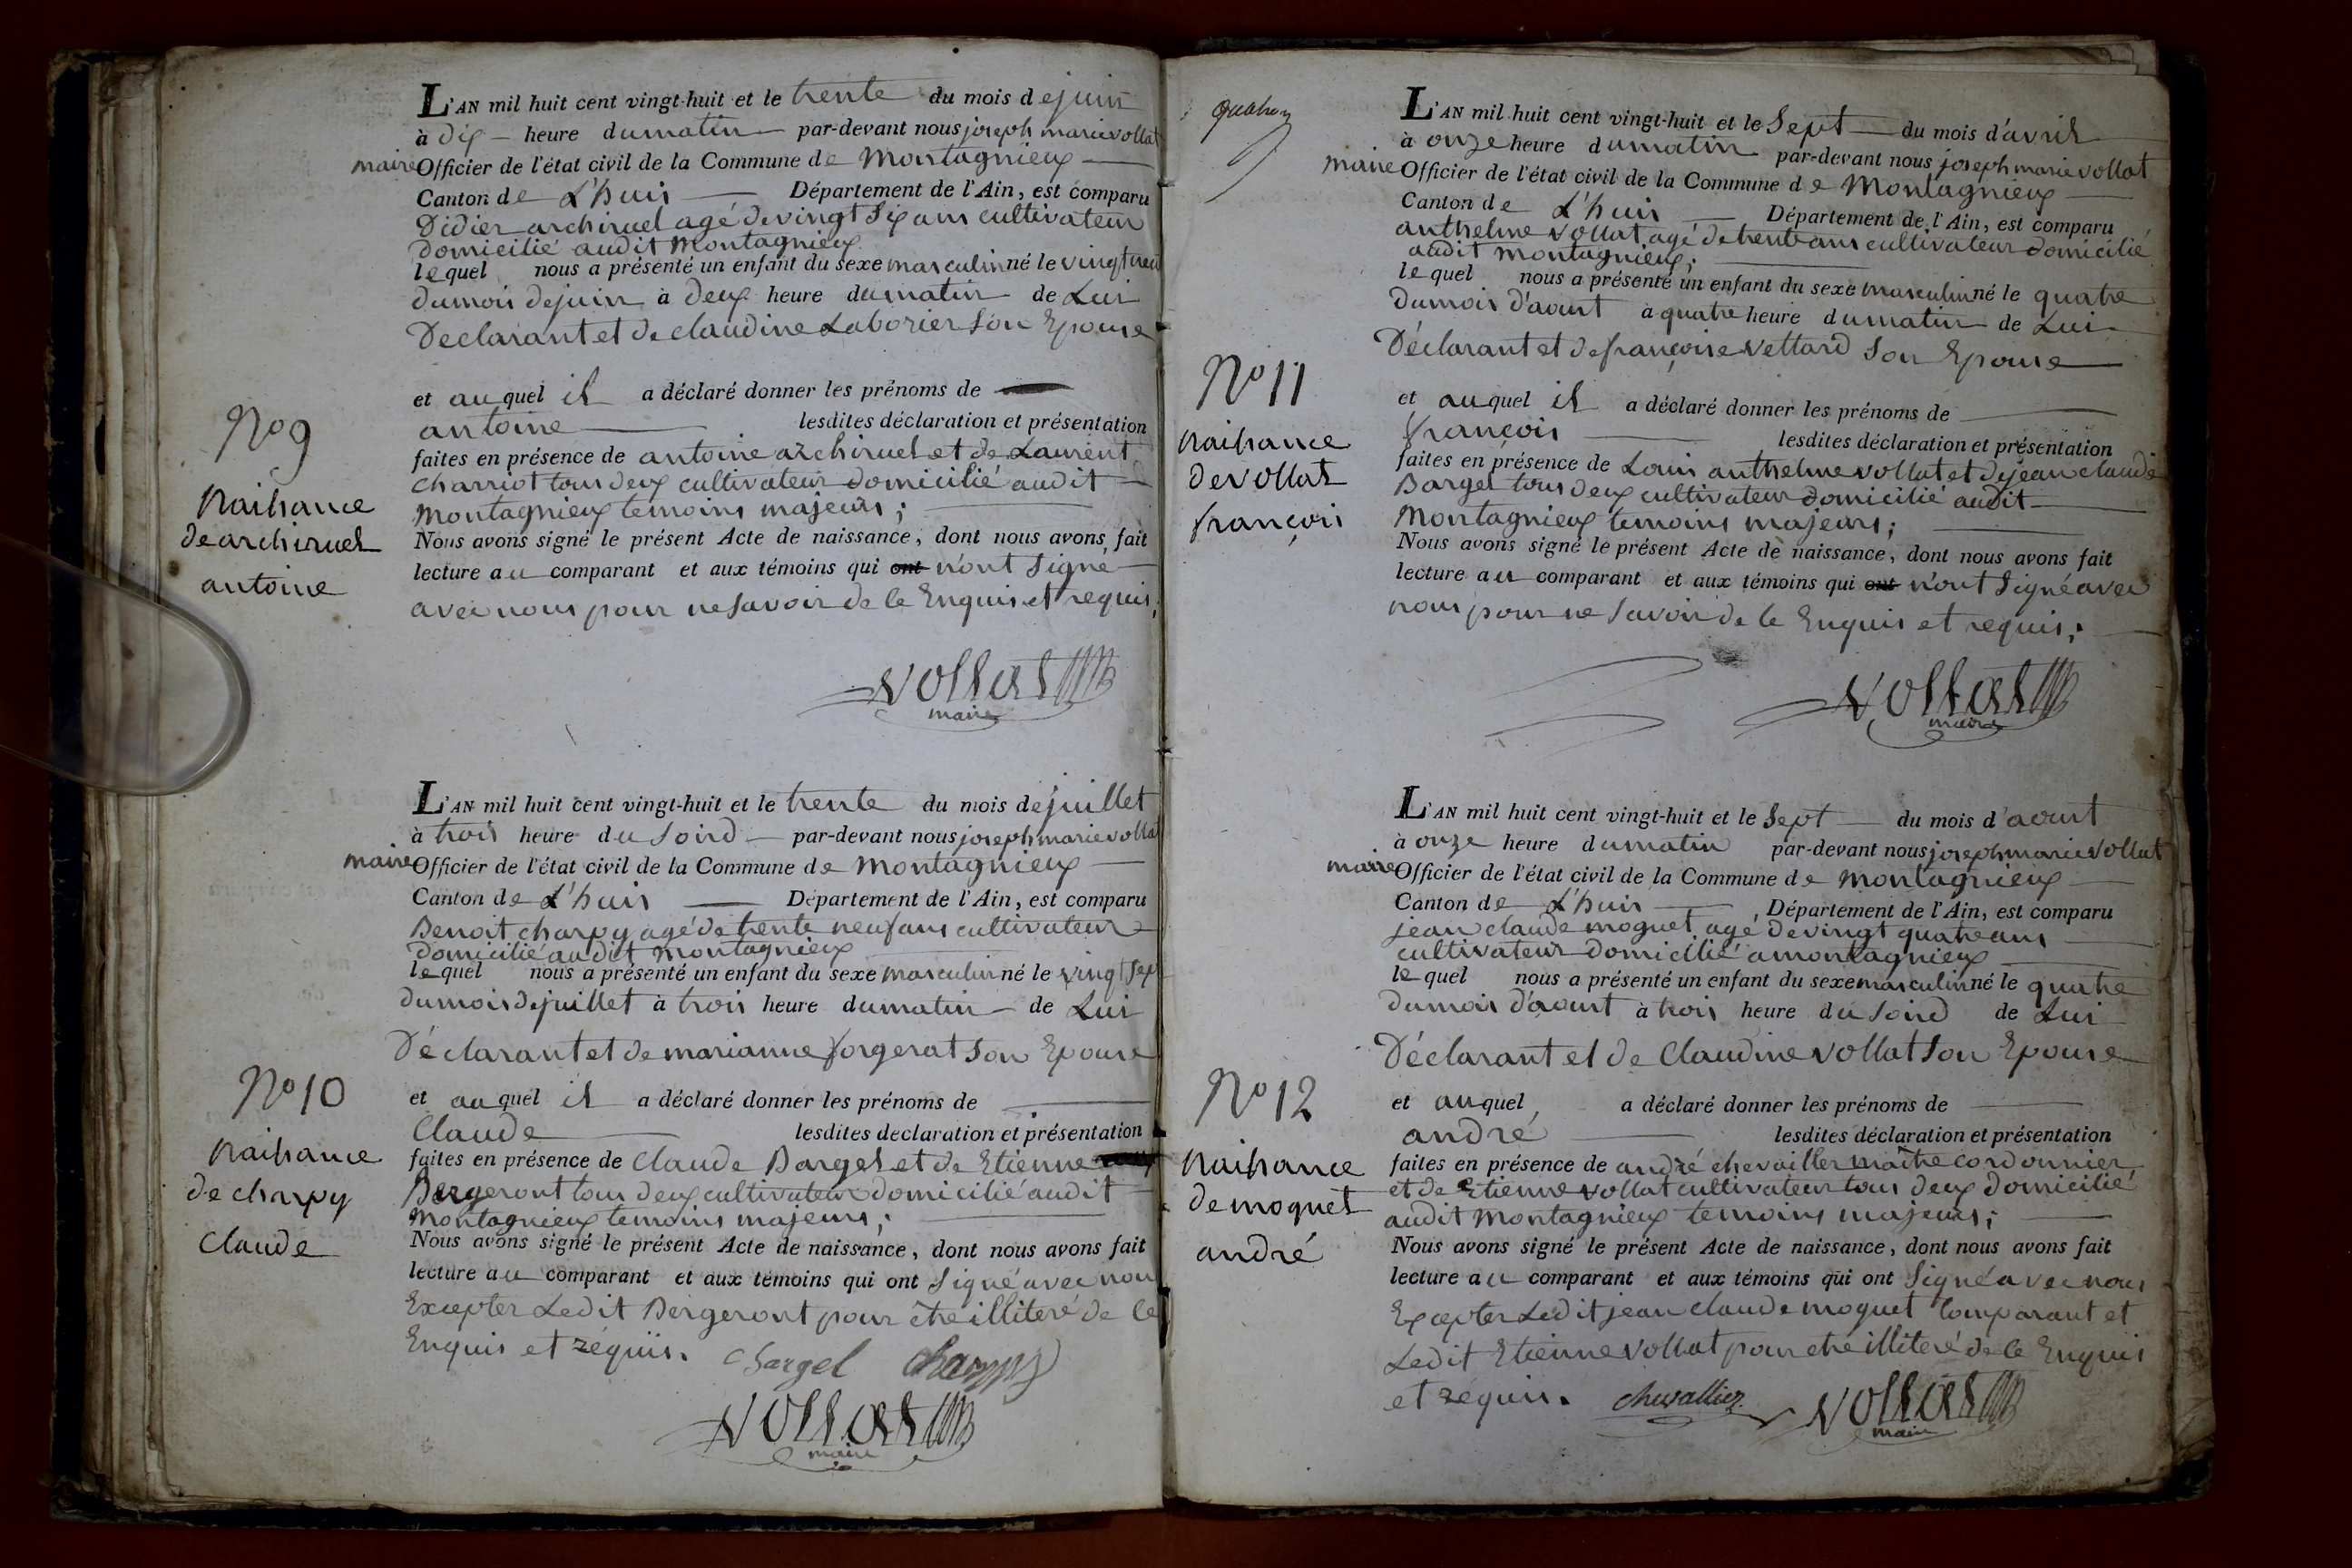 L'AN mil huit cent vingt-huit et le trente du mois de juin
à dix heure du matin par-devant nous joseph marie vollat
maire Officier de l'état civil de la Commune de Montagnieux
Canton de L'huis Département de l'Ain, est comparu
Didier archiruel agé de vingt six ans cultivateur
domicilié audit Montagnieux
lequel nous a présenté un enfant du sexe masculin né le vingt
du mois de juin à deux heure du matin de Lui
Declarant et de claudine Laborier Son Epouse
et auquel il a déclaré donner les prénoms de
antoine lesdites déclaration et présentation
faites en présence de antoine archiruel et de Laurent
charriot tous deux cultivateur domicilié audit
Montagnieux temoins majeurs;
Nous avons signé le présent Acte de naissance, dont nous avons fait
lecture au comparant et aux témoins qui ont n'ont Signé
avec nous pour ne Savoir de le Enquis et requis;
vollat
maire
No 9
Naissance
de archiruel
antoine
L'AN mil huit cent vingt-huit et le trente du mois de juillet
à trois heure du Soird par-devant nous joseph marie vollat
maire Officier de l'état civil de la Commune de Montagnieux
Canton de L'huis Département de l'Ain, est comparu
Benoit charvy agé de trente neuf ans cultivateur
domicilié audit Montagnieux
lequel nous a présenté un enfant du sexe masculin né le vingt Sept
du mois de juillet à trois heure du matin de Lui
Déclarant et de marianne forgerat Son Epouse
et auquel il a déclaré donner les prénoms de
Claude lesdites declaration et présentation
faites en présence de Claude Bargel et de Etienne
Bergeront tous deux cultivateur domicilié audit
Montagnieux temoins majeurs;
Nous avons signé le présent Acte de naissance, dont nous avons fait
lecture au comparant et aux témoins qui ont Signé avec nou
Excepter Ledit Bergeront pour être illiteré de le
Enquis et réquis.
Bargel charvy
vollat
maire
No 10
Naissance
de charvy
Claude
quatre
L'AN mil huit cent vingt-huit et le Sept du mois d'avril
à onze heure du matin par-devant nous joseph marie vollat
maire Officier de l'état civil de la Commune de Montagnieux
Canton de L'huis Département de l'Ain, est comparu
anthelme vollat agé de trente ans cultivateur domicilié
audit Montagnieux;
lequel nous a présenté un enfant du sexe masculin né le quatre
du mois d'aoust à quatre heure du matin de Lui
Déclarant et de françoise vettard Son Epouse
et auquel il a déclaré donner les prénoms de
françois lesdites déclaration et présentation
faites en présence de Louis anthelme vollat et de jean claude
Bargel tous deux cultivateur domicilié audit
Montagnieux temoins majeurs;
Nous avons signé le présent Acte de naissance, dont nous avons fait
lecture au comparant et aux témoins qui ont n'ont Signé avec
nous pour ne Savoir de le Enquis et requis;
vollat
maire
No 11
Naissance
de vollat
françois
L'AN mil huit cent vingt-huit et le Sept du mois d'aoust
à onze heure du matin par-devant nous joseph marie vollat
maire Officier de l'état civil de la Commune de Montagnieux
Canton de L'huis Département de l'Ain, est comparu
jean claude moquet agé de vingt quatre ans
cultivateur domicilié a montagnieux
lequel nous a présenté un enfant du sexe masculin né le quatre
du mois d'aoust à trois heure du Soird de Lui
Déclarant et de Claudine vollat Son Epouse
et auquel a déclaré donner les prénoms de
andré lesdites déclaration et présentation
faites en présence de andré chevailler maitre cordonnier
et de Etienne vollat cultivateur tous deux domicilié
audit Montagnieux temoins majeurs;
Nous avons signé le présent Acte de naissance, dont nous avons fait
lecture au comparant et aux témoins qui ont Signé avec nous
Excepter Ledit jean claude moquet Comparant et
Ledit Etienne vollat pour etre illiteré de le Enquis
et réquis. chevallier vollat
maire
No 12
Naissance
de moquet
andré